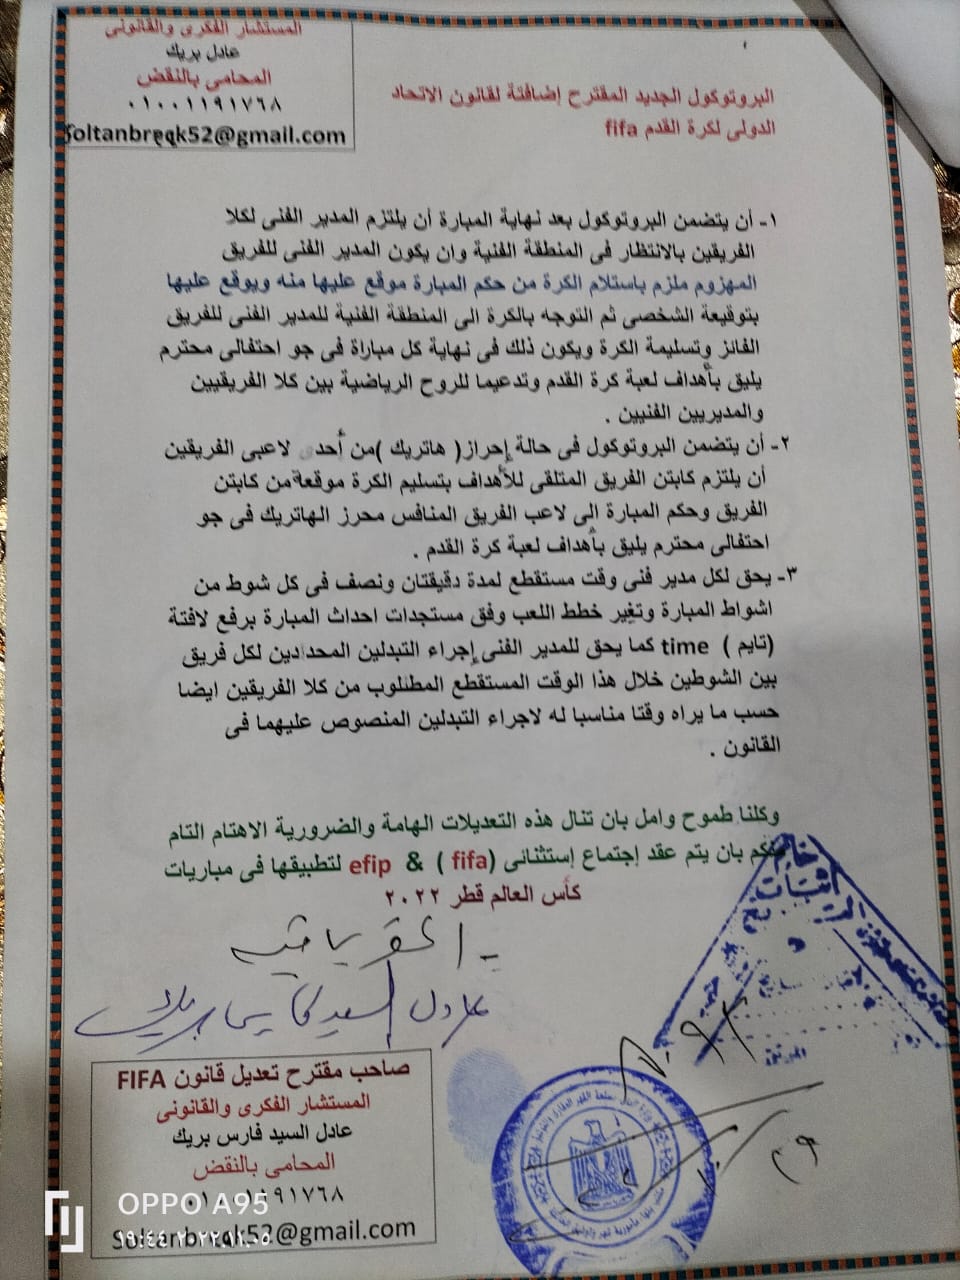 المستشار الفكرى والقانونى
عادل بريك
المحامى بالنقض
٠١٠٠١١٩١٧٦٨
Soltanbreak52@gmail.com
البروتوكول الجديد المقترح إضافتة لقانون الاتحاد
الدولى لكرة القدم fifa
١- أن يتضمن البروتوكول بعد نهاية المبارة أن يلتزم المدير الفنى لكلا
الفريقين بالانتظار فى المنطقة الفنية وان يكون المدير الفنى للفريق
المهزوم ملزم باستلام الكرة من حكم المبارة موقع عليها منه ويوقع عليها
بتوقيعة الشخصى ثم التوجه بالكرة الى المنطقة الفنية للمدير الفنى للفريق
الفائز وتسليمة الكرة ويكون ذلك فى نهاية كل مباراة فى جو احتفالى محترم
يليق بأهداف لعبة كرة القدم وتدعيما للروح الرياضية بين كلا الفريقيين
والمديريين الفنيين .
٢- أن يتضمن البروتوكول فى حالة إحراز( هاتريك )من أحدى لاعبى الفريقين
أن يلتزم كابتن الفريق المتلقى للأهداف بتسليم الكرة موقعة من كابتن
الفريق وحكم المبارة الى لاعب الفريق المنافس محرز الهاتريك فى جو
احتفالى محترم يليق بأهداف لعبة كرة القدم .
٣- يحق لكل مدير فنى وقت مستقطع لمدة دقيقتان ونصف فى كل شوط من
اشواط المبارة وتغير خطط اللعب وفق مستجدات احداث المبارة برفع لافتة
(تايم ) time كما يحق للمدير الفنى إجراء التبدلين المحددين لكل فريق
بين الشوطين خلال هذا الوقت المستقطع المطلوب من كلا الفريقين ايضا
حسب ما يراه وقتا مناسبا له لاجراء التبدلين المنصوص عليهما فى
القانون .
وكلنا طموح وامل بان تنال هذه التعديلات الهامة والضرورية الاهتام التام
منكم بان يتم عقد إجتماع إستثنائى (fifa ) & efip لتطبيقها فى مباريات
كأس العالم قطر ٢٠٢٢
عادل السيد فارس بريك
صاحب مقترح تعديل قانون FIFA
المستشار الفكرى والقانونى
عادل السيد فارس بريك
المحامى بالنقض
٠١٠٠١١٩١٧٦٨
Soltanbreak52@gmail.com
OPPO A95